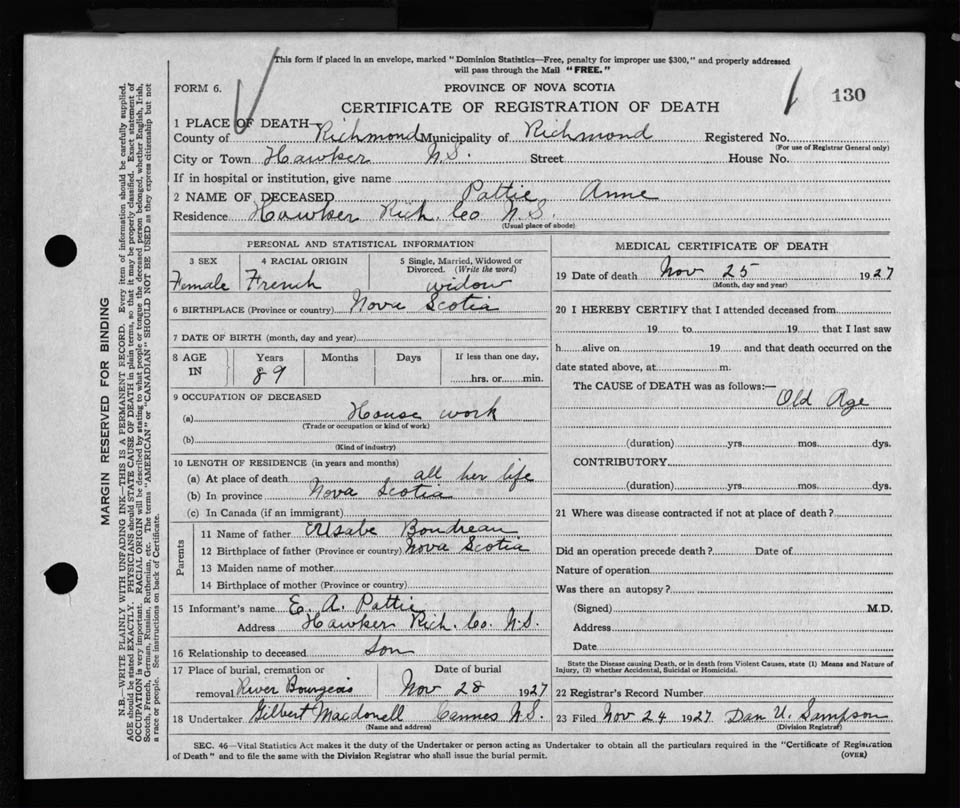 This form if placed in an envelope, marked "Dominion Statistics—Free, penalty for improper use $300," and properly addressed
will pass through the Mail "FREE."
FORM 6. PROVINCE OF NOVA SCOTIA 130
CERTIFICATE OF REGISTRATION OF DEATH
1 PLACE OF DEATH—
County of Richmond Municipality of Richmond Registered No.
(For use of Registrar General only)
City or Town Hawker N.S. Street House No.
If in hospital or institution, give name
2 NAME OF DECEASED Pattie Anne
Residence Hawker Rich. Co N.S.
(Usual place of abode)
PERSONAL AND STATISTICAL INFORMATION
3 SEX 4 RACIAL ORIGIN 5 Single, Married, Widowed or
Divorced. (Write the word)
Female French widow
6 BIRTHPLACE (Province or country) Nova Scotia
7 DATE OF BIRTH (month, day and year)
8 AGE IN Years Months Days If less than one day,
89 hrs. or min.
9 OCCUPATION OF DECEASED
(a) House work
(Trade or occupation or kind of work)
(b)
(Kind of industry)
10 LENGTH OF RESIDENCE (in years and months)
(a) At place of death all her life
(b) In province Nova Scotia
(c) In Canada (if an immigrant)
Parents
11 Name of father Boudreau
12 Birthplace of father (Province or country) Nova Scotia
13 Maiden name of mother
14 Birthplace of mother (Province or country)
15 Informant's name E. A. Pattie
Address Hawker Rich. Co. N.S.
16 Relationship to deceased Son
17 Place of burial, cremation or Date of burial
removal River Bourgeois Nov 28 1927
18 Undertaker Gilbert Macdonell Cannes N.S.
(Name and address)
MEDICAL CERTIFICATE OF DEATH
19 Date of death Nov 25 1927
(Month, day and year)
20 I HEREBY CERTIFY that I attended deceased from
19 to 19 that I last saw
h alive on 19 and that death occurred on the
date stated above, at m.
The CAUSE of DEATH was as follows:—
Old Age
(duration) yrs. mos. dys.
CONTRIBUTORY
(duration) yrs. mos. dys.
21 Where was disease contracted if not at place of death?
Did an operation precede death? Date of
Nature of operation
Was there an autopsy?
(Signed) M.D.
Address
Date
State the Disease causing Death, or in death from Violent Causes, state (1) Means and Nature of
Injury, (2) whether Accidental, Suicidal or Homicidal.
22 Registrar's Record Number
23 Filed Nov 24 1927 Dan U. Sampson
(Division Registrar)
SEC. 46—Vital Statistics Act makes it the duty of the Undertaker or person acting as Undertaker to obtain all the particulars required in the "Certificate of Registration
of Death" and to file the same with the Division Registrar who shall issue the burial permit. (OVER)
MARGIN RESERVED FOR BINDING
N.B.—WRITE PLAINLY WITH UNFADING INK—THIS IS A PERMANENT RECORD. Every item of information should be carefully supplied.
AGE should be stated EXACTLY. PHYSICIANS should STATE CAUSE OF DEATH in plain terms, so that it may be properly classified. Exact statement of
OCCUPATION is very important. RACIAL ORIGIN will be described by stating to what people or tongue the deceased person belonged, whether English, Irish,
Scotch, French, German, Russian, Ruthenian, etc. The terms "AMERICAN" or "CANADIAN" SHOULD NOT BE USED as they express citizenship but not
a race or people. See instructions on back of Certificate.